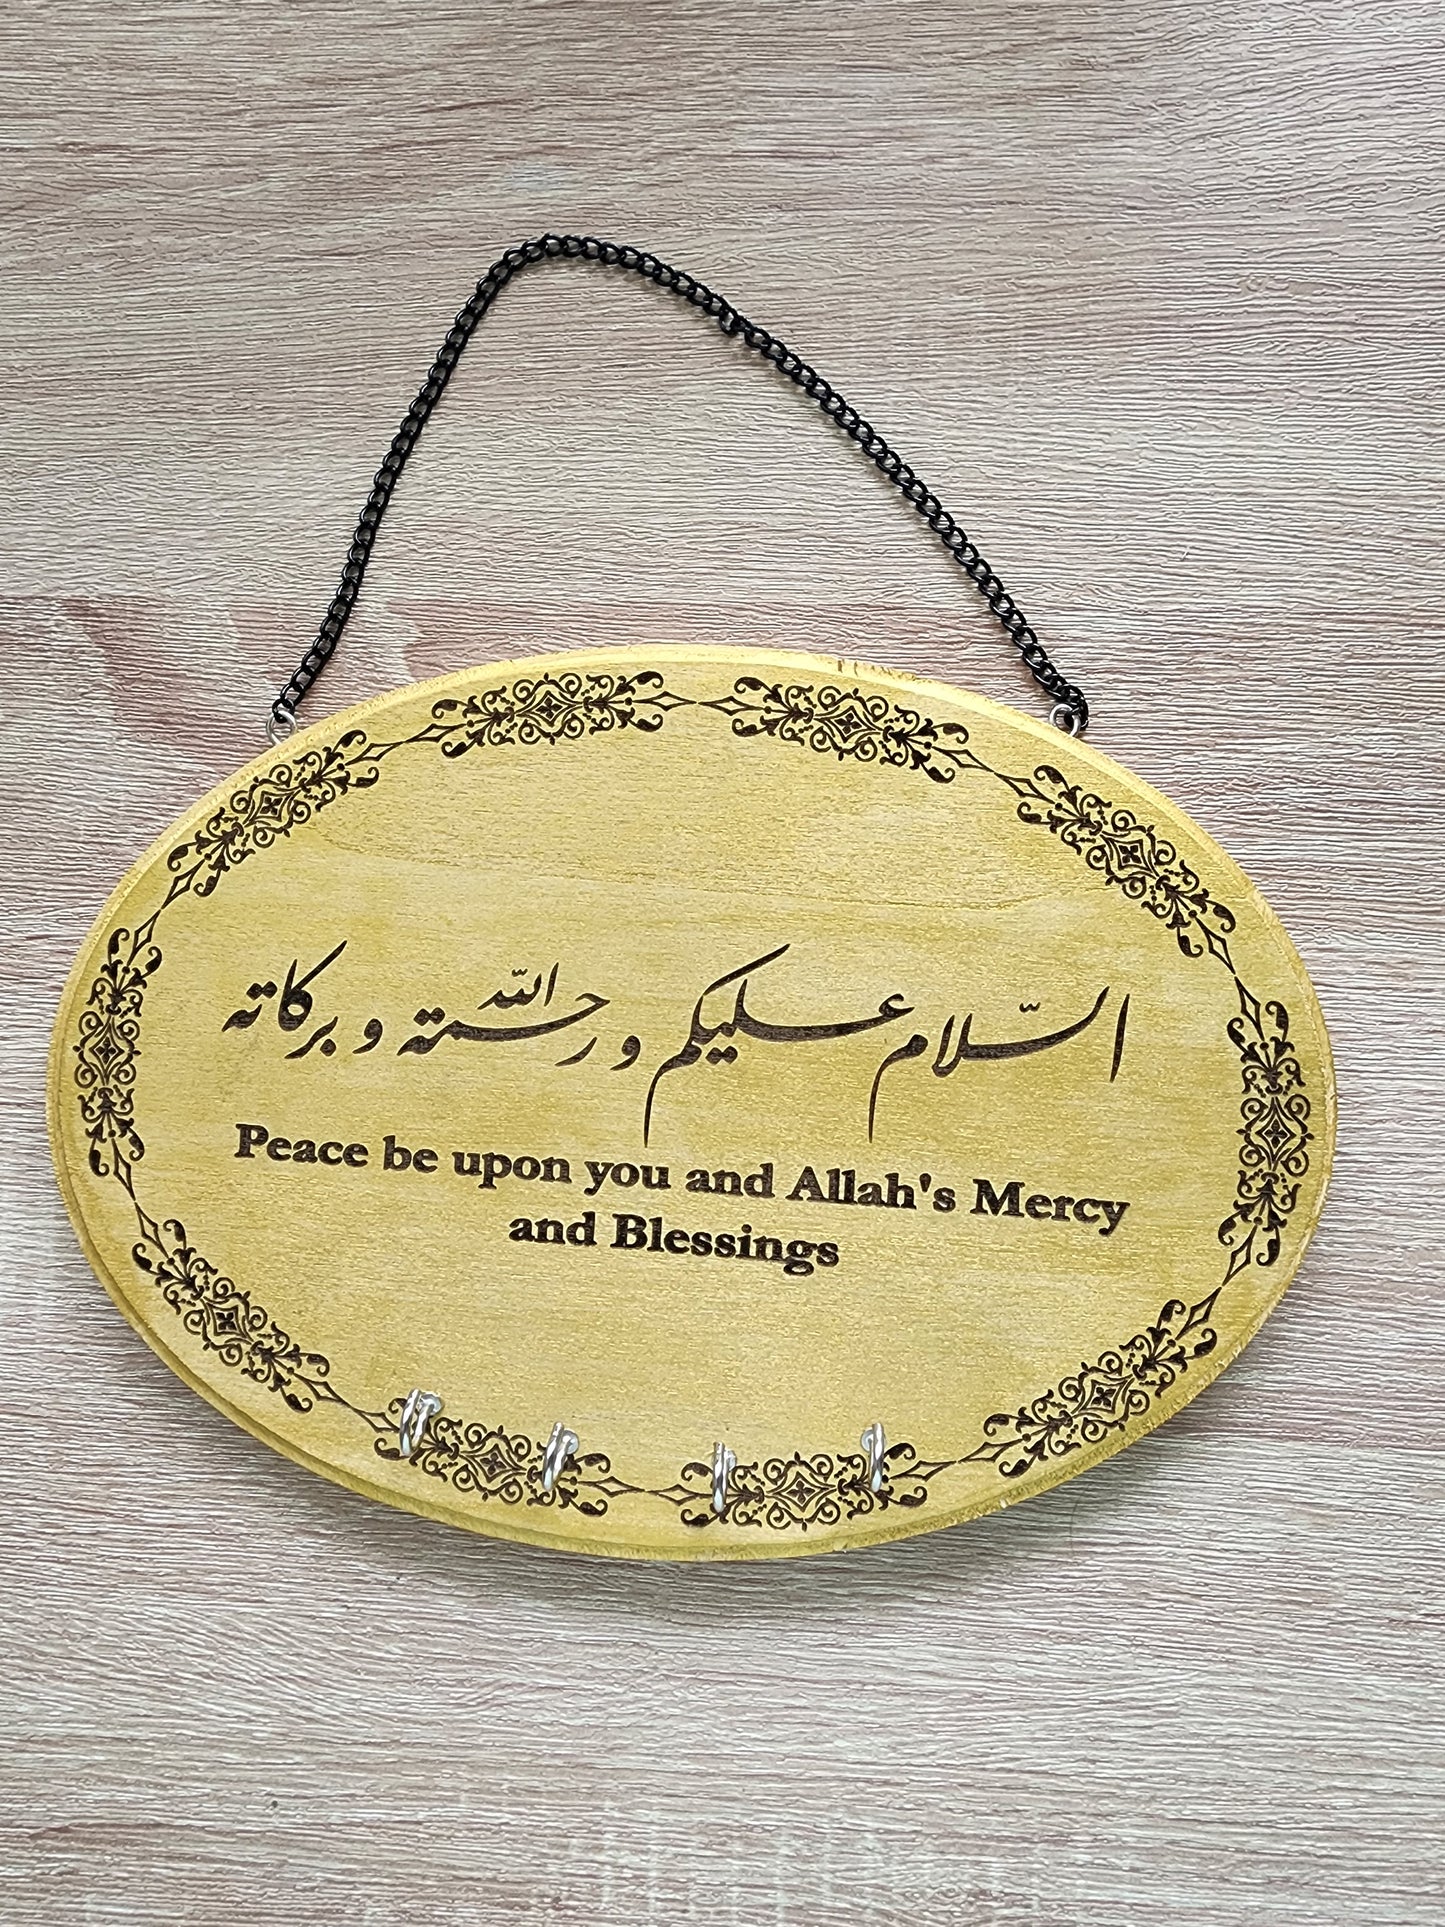 السّلام عليكم و رحمته الله و بركاته
Peace be upon you and Allah's Mercy
and Blessings